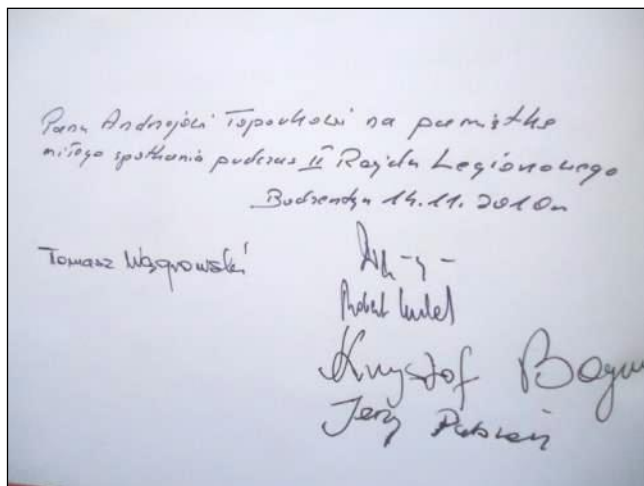 Panu Andrzejowi Toporkowi na pamiątkę
miłego spotkania podczas II Rajdu Legionowego
14.11.2010r
Tomasz Wągrowski
Robert
Krzysztof
Jerzy